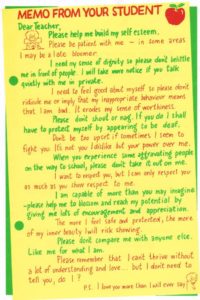 MEMO FROM YOUR STUDENT
Dear Teacher,
Please help me build my self esteem.
Please be patient with me – in some areas
I may be a late bloomer.
I need my sense of dignity so please don't belittle
me in front of people. I will take more notice if you talk
quietly with me in private.
I need to feel good about myself so please don't
ridicule me or imply that my inappropriate behaviour means
that I am bad. It erodes my sense of worthiness.
Please don't shout or nag. If you do I shall
have to protect myself by appearing to be deaf.
Don't be too upset if sometimes I seem to
fight you. It's not you I dislike but your power over me.
When you experience some aggravating people
on the way to school, please don't take it out on me.
I want to respect you, but I can only respect you
as much as you show respect to me.
I am capable of more than you may imagine
-please help me to blossom and reach my potential by
giving me lots of encouragement and appreciation.
The more I feel safe and protected, the more
of my inner beauty I will risk showing.
Please don't compare me with anyone else.
Like me for what I am.
Please remember that I can't thrive without
a lot of understanding and love... but I don't need to
tell you, do I ?
P.S. I love you more than I will ever say!